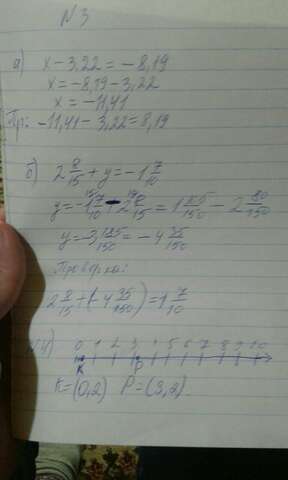 N 3
а) x - 3,22 = - 8,19
x = -8,19 - 3,22
x = -11,41
Пр: -11,41 - 3,22 = 8,19
б) 2 8/15 + y = -1 7/10
y = -1 7/10 - 2 8/15 = 1 105/150 - 2 80/150
y = -3 185/150 = -4 35/150
Проверка:
2 8/15 + (-4 35/150) = 1 7/10
N4) 0 1 2 3 4 5 6 7 8 9 10
K P
K = (0,2) P = (3,2)